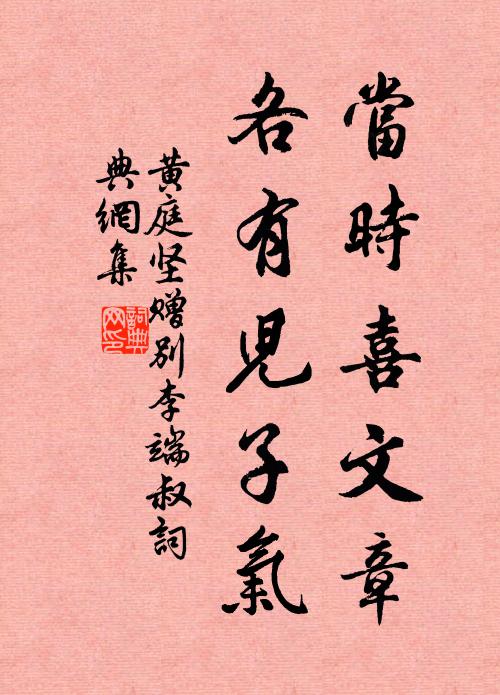 當時喜文章
各有兒子氣
黄庭坚赠别李端叔詞
典網集
詞典
网印